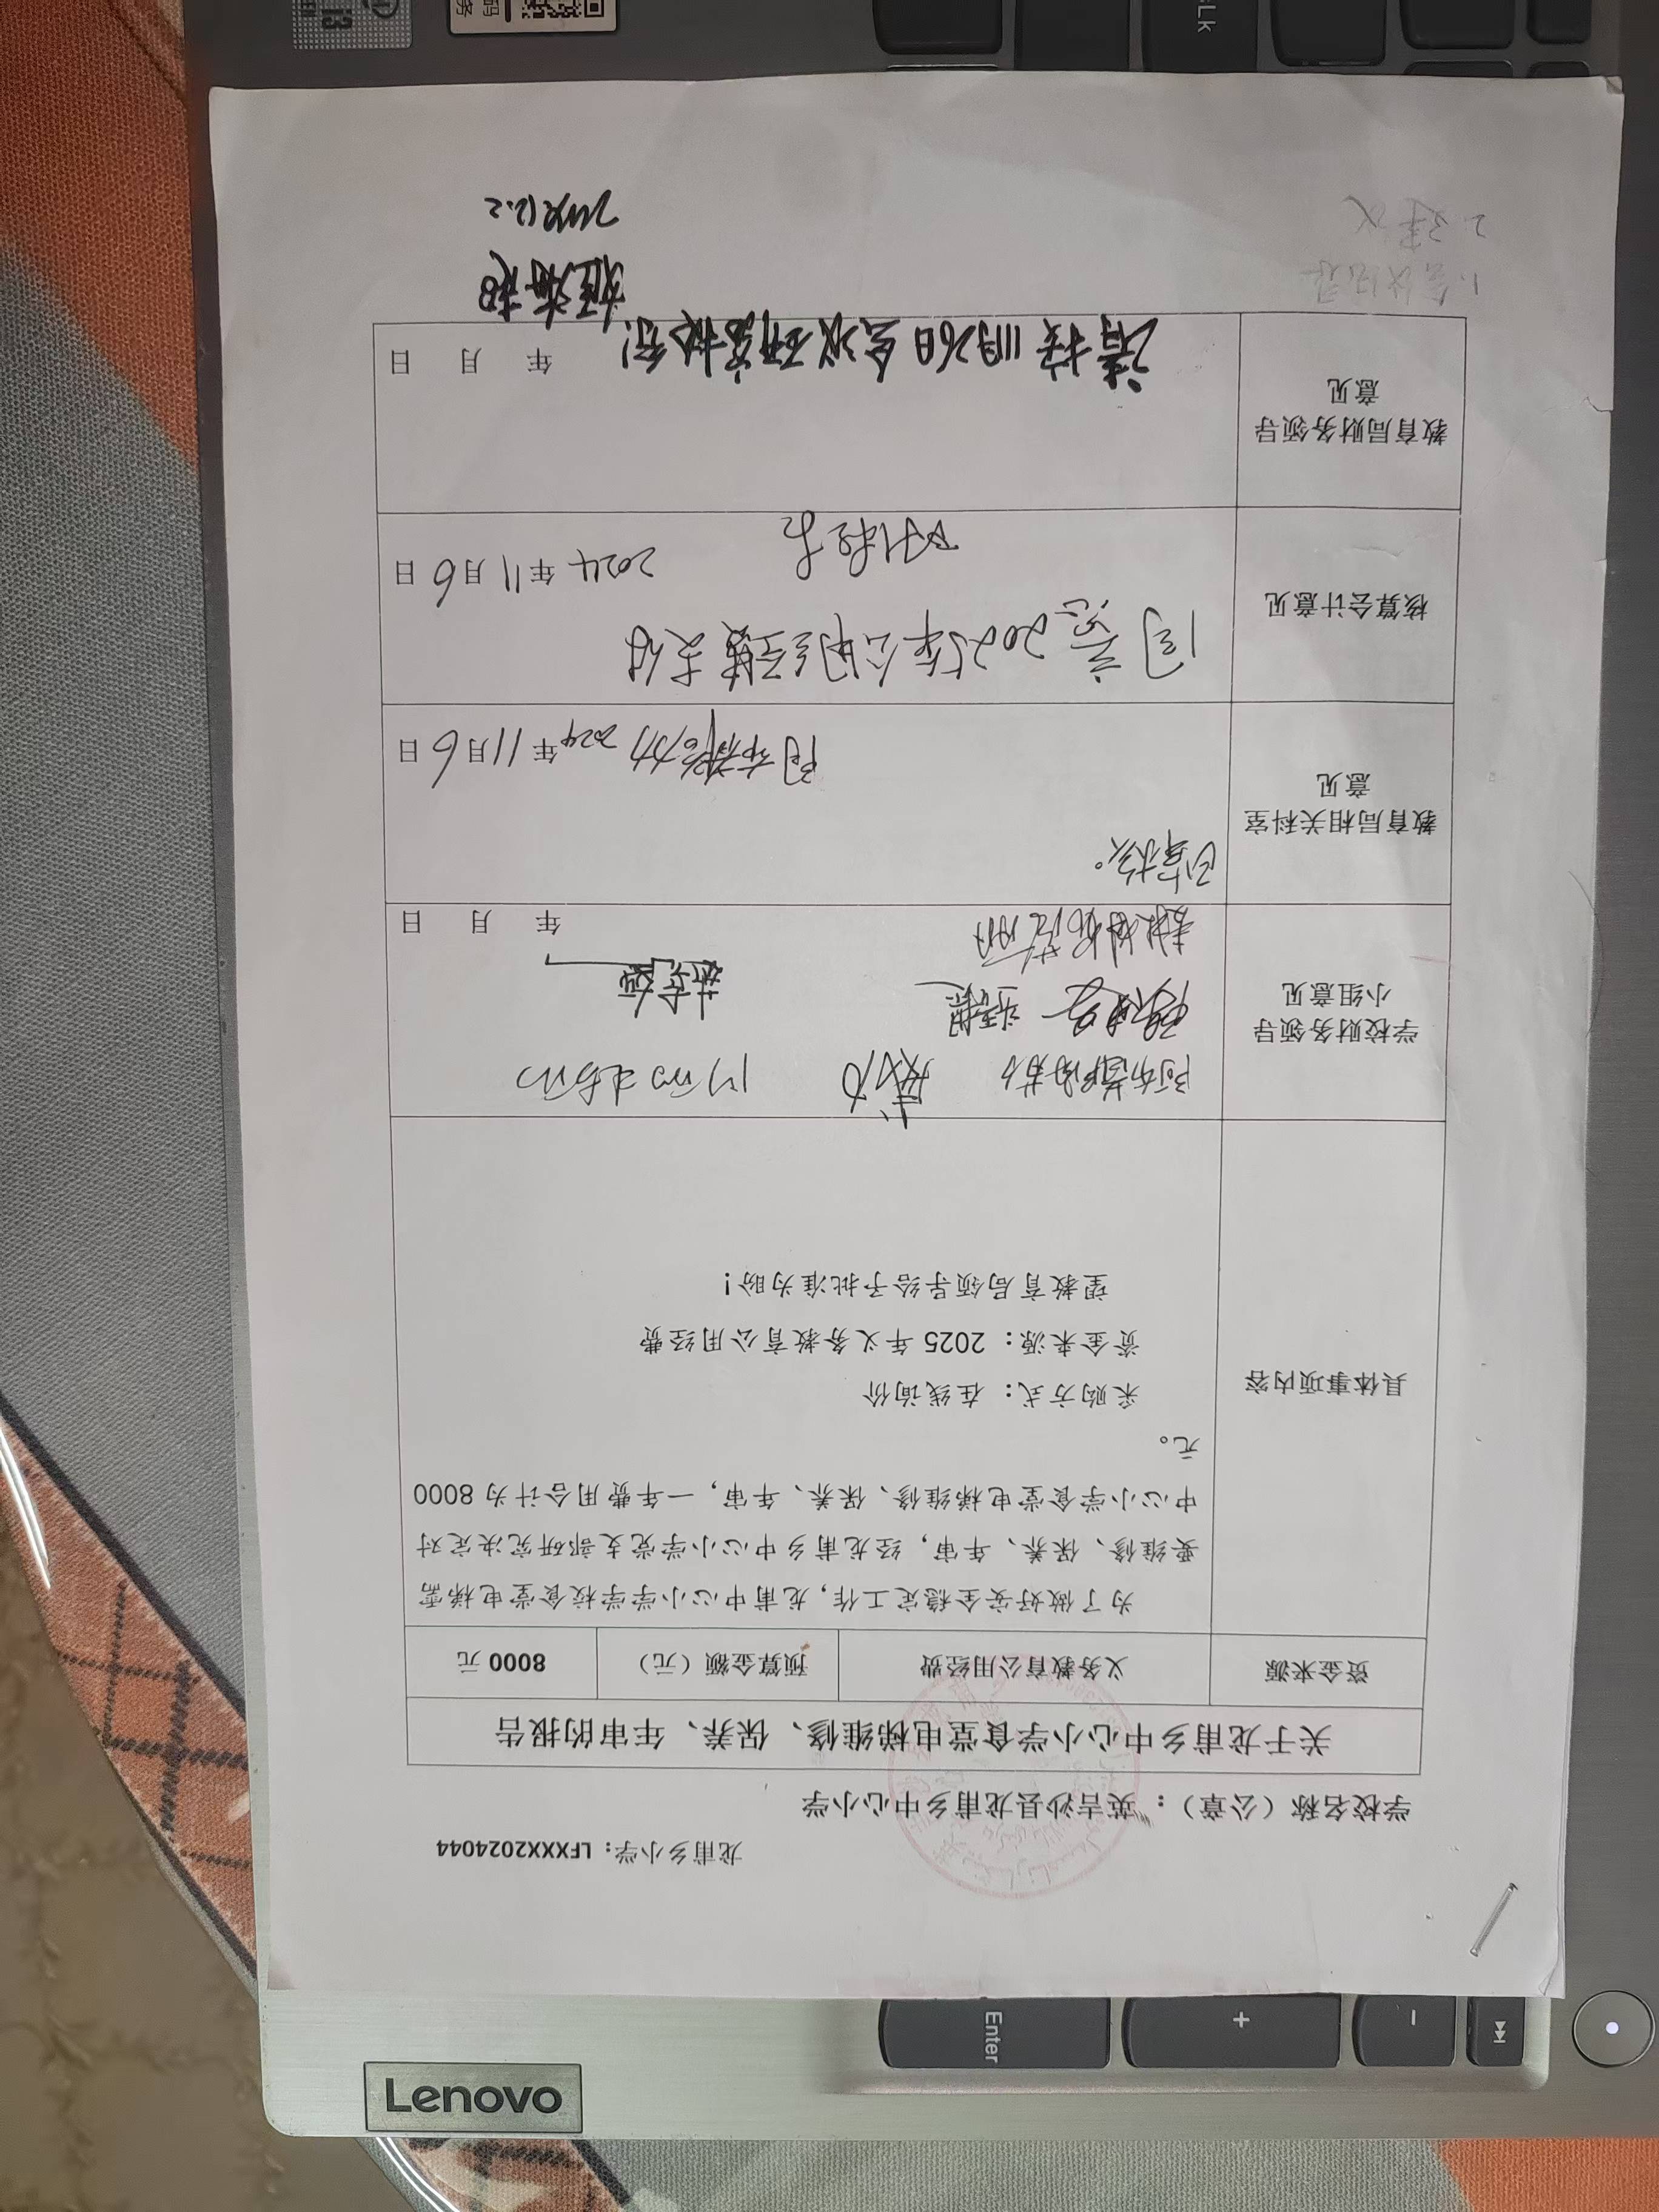 龙甫乡小学：LFXXX2024044
学校名称（公章）：英吉沙县龙甫乡中心小学
关于龙甫乡中心小学食堂电梯维修、保养、年审的报告
资金来源 义务教育公用经费 预算金额（元） 8000 元
具体事项内容
为了做好安全稳定工作，龙甫中心小学学校食堂电梯需
要维修、保养、年审，经龙甫乡中心小学党支部研究决定对
中心小学食堂电梯维修、保养、年审，一年费用合计为 8000
元。
采购方式：在线询价
资金来源：2025 年义务教育公用经费
望教育局领导给予批准为盼！
学校财务领导
小组意见
年 月 日
教育局相关科室
意见
已审核。
2024年11月6日
核算会计意见
同意2025年公用经费支付
2024年11月6日
教育局财务领导
意见
请按11月26日会议研究执行！
年 月 日
1.会议记录
Lenovo
Enter
+
-
i3